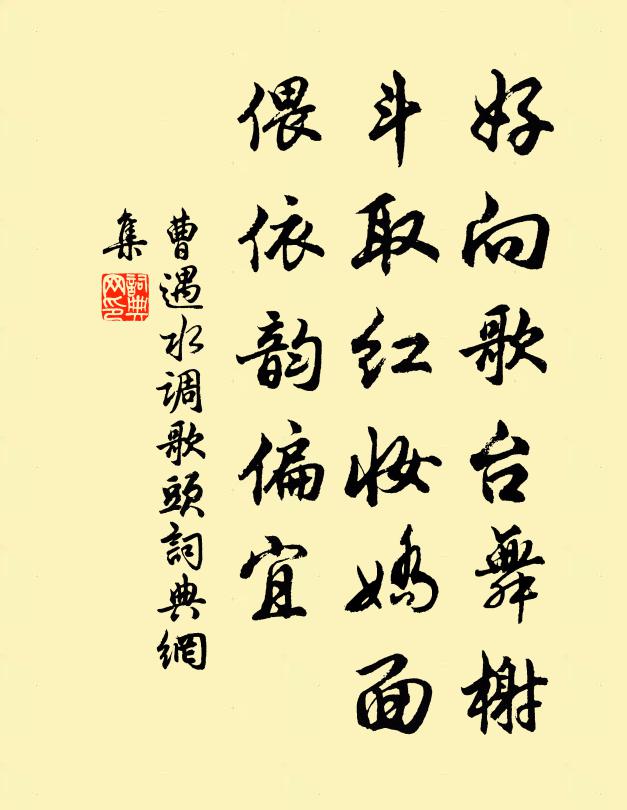 好向歌台舞榭
斗取红妆娇面
偎依韵偏宜
曹遇水调歌頭詞典網
集
詞典网印